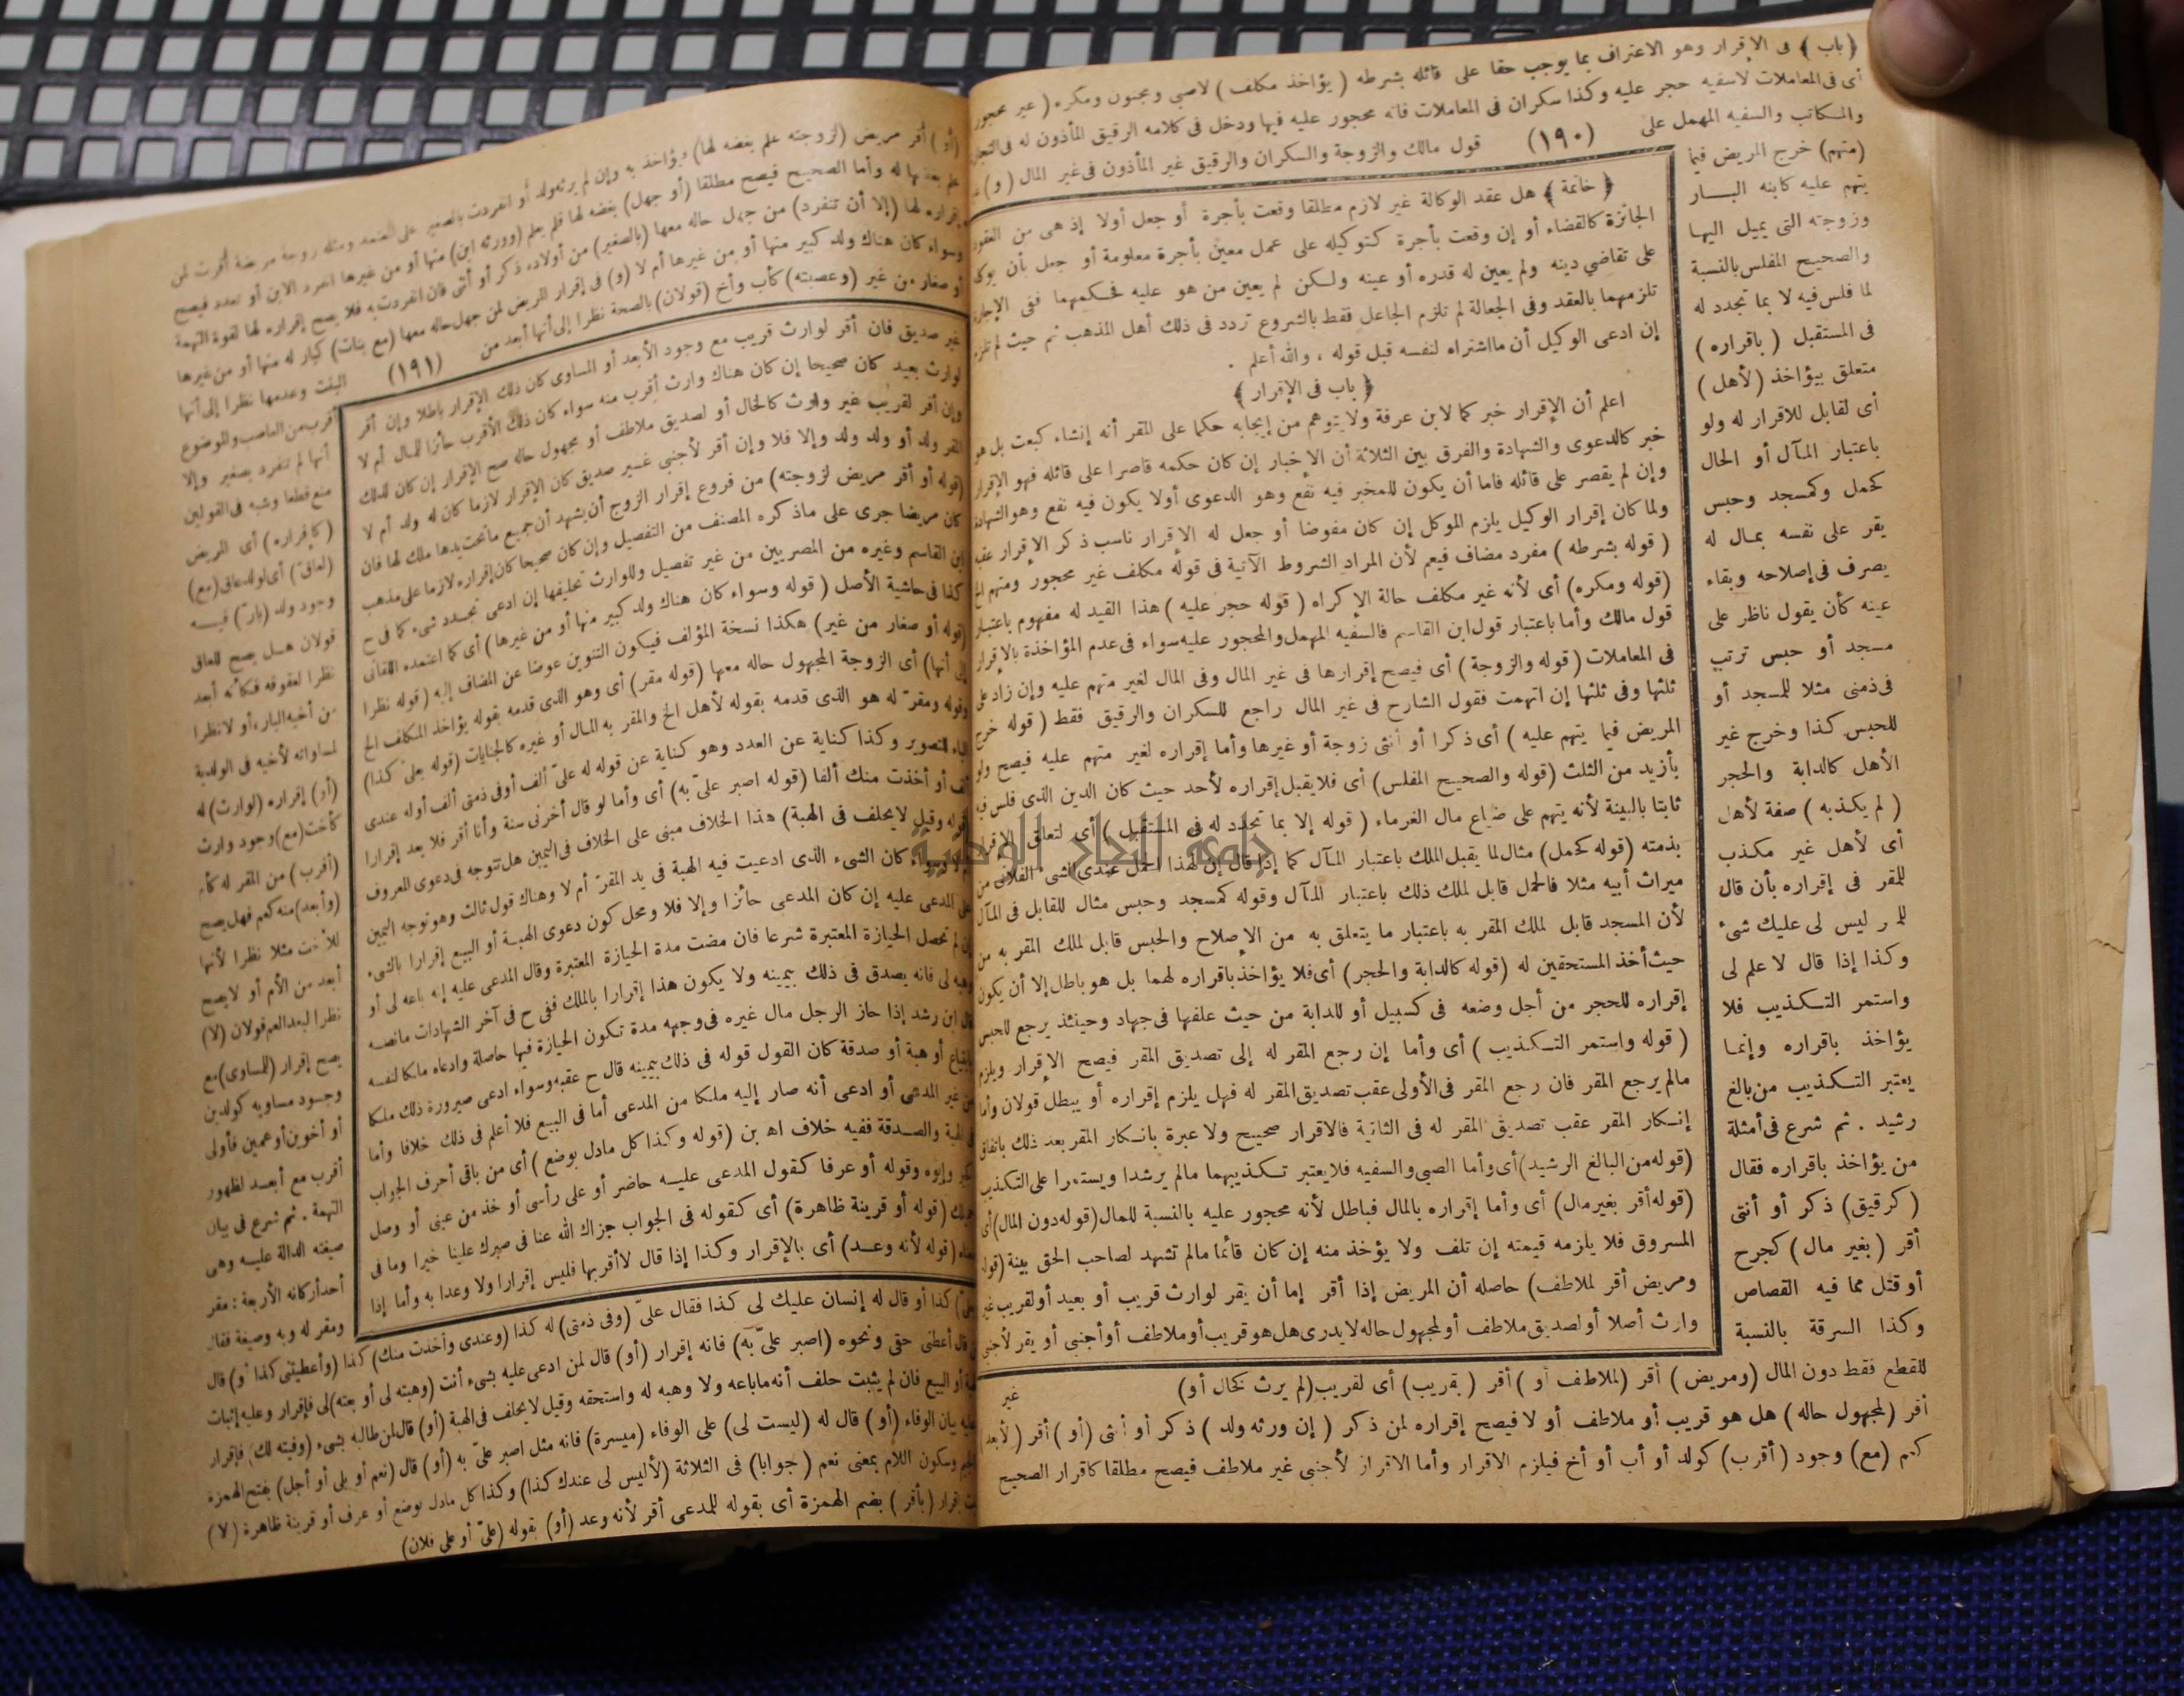 ﴿باب﴾ فى الإقرار وهو الاعتراف بما يوجب حقا على قائله بشرطه (يؤاخذ مكلف) لاصبى ومجنون ومكره (غير محجور
أى فى المعاملات لاسفيه حجر عليه وكذا سكران فى المعاملات فانه محجور عليه فيها ودخل فى كلامه الرقيق المأذون له فى
والمكاتب والسفيه المهمل على (١٩٠) قول مالك والزوجة والسكران والرقيق غير المأذون فى غير المال (و)
(متهم) خرج المريض فيما
يتهم عليه كابنه البــار
وزوجته التى يميل اليها
والصحيح المفلس بالنسبة
لما فلس فيه لا بما تجدد له
فى المستقبل (باقراره)
متعلق بيؤاخذ (لأهل)
أى لقابل للاقرار له ولو
باعتبار المآل أو الحال
كحمل وكمسجد وحبس
يقر على نفسه بمـال له
يصرف فى إصلاحه وبقاء
عينه كأن يقول ناظر على
مسجد أو حبس ترتب
فى ذمتى مثلا للمسجد أو
للحبس كذا وخرج غير
الأهل كالدابة والحجر
(لم يكذبه) صفة لأهل
أى لأهل غير مكذب
للمقر فى إقراره بأن قال
ليس لى عليك شىء
وكذا إذا قال لا علم لى
واستمر التـكـذيب فلا
يؤاخذ باقراره وإنمـا
يعتبر التـكذيب من بالغ
رشيد . ثم شرع فى أمثلة
من يؤاخذ باقراره فقال
(كرقيق) ذكر أو أنثى
أقر (بغير مال) كجرح
أو قتل مما فيه القصاص
وكذا السرقة بالنسبة
للقطع فقط دون المال (ومريض) أقر (لملاطف أو) أقر (بقريب) أى لقريب (لم يرث كخال أو)
غير
أقر (لمجهول حاله) هل هو قريب أو ملاطف أو لا فيصح إقراره لمن ذكر (إن ورثه ولد) ذكر أو أنثى (أو) أقر (لأبعد
(مع) وجود (أقرب) كولد أو أب أو أخ فيلزم الاقرار وأما الاقرار لأجنبى غير ملاطف فيصح مطلقا كاقرار الصحيح
﴿خاتمة﴾ هل عقد الوكالة غير لازم مطلقا وقعت بأجرة أو جعل أولا إذ هى من العقود
الجائزة كالقضاء أو إن وقعت بأجرة كتوكيله على عمل معين بأجرة معلومة أو جعل بأن
على تقاضي دينه ولم يعين له قدره أو عينه ولـكن لم يعين من هو عليه فحكمهما ففى
تلزمهما بالعقد وفى الجعالة لم تلزم الجاعل فقط بالشروع تردد فى ذلك أهل المذهب ثم حيث لم
إن ادعى الوكيل أن مااشتراه لنفسه قبل قوله ، والله أعلم .
﴿باب فى الإقرار﴾
اعلم أن الإقرار خبر كما لابن عرفة ولا يتوهم من إيجابه حكما على المقر أنه إنشاء كبعت بل هو
خبر كالدعوى والشهادة والفرق بين الثلاثة أن الإخبار إن كان حكمه قاصرا على قائله فهو الإقرار
وإن لم يقصر على قائله فاما أن يكون للمخبر فيه نفع وهو الدعوى أولا يكون فيه نفع وهو الشهادة
ولما كان إقرار الوكيل يلزم الموكل إن كان مفوضا أو جعل له الإقرار ناسب ذكر الإقرار
(قوله بشرطه) مفرد مضاف فيعم لأن المراد الشروط الآتية فى قوله مكلف غير محجور ومتهم الخ
(قوله ومكره) أى لأنه غير مكلف حالة الإكراه (قوله حجر عليه) هذا القيد له مفهوم باعتبار
قول مالك وأما باعتبار قول ابن القاسم فالسفيه المهمل والمحجور عليه سواء فى عدم المؤاخذة بالإقرار
فى المعاملات (قوله والزوجة) أى فيصح إقرارها فى غير المال وفى المال لغير متهم عليه وإن زاد على
ثلثها وفى ثلثها إن اتهمت فقول الشارح فى غير المال راجع للسكران والرقيق فقط (قوله خرج
المريض فيما يتهم عليه) أى ذكرا أو أنثى زوجة أو غيرها وأما إقراره لغير متهم عليه فيصح ولو
بأزيد من الثلث (قوله والصحيح المفلس) أى فلا يقبل إقراره لأحد حيث كان الدين الذى فلس فيه
ثابتا بالبينة لأنه يتهم على ضياع مال الغرماء (قوله إلا بما تجدد له فى المستقبل) أى لتعلق
بذمته (قوله كحمل) مثال لما يقبل الملك باعتبار المآل كما إذا قال إن لهذا الحمل عندى الشىء الفلانى من
ميراث أبيه مثلا فالحمل قابل لملك ذلك باعتبار المآل وقوله كمسجد وحبس مثال للقابل فى
لأن المسجد قابل لملك المقر به باعتبار ما يتعلق به من الإصلاح والحبس قابل لملك المقر به من
حيث أخذ المستحقين له (قوله كالدابة والحجر) أى فلا يؤاخذ باقراره لهما بل هو باطل إلا أن يكون
إقراره للحجر من أجل وضعه فى كسبيل أو للدابة من حيث علفها فى جهاد وحينئذ يرجع للحبس
(قوله واستمر التـكـذيب) أى وأما إن رجع المقر له إلى تصديق المقر فيصح الإقرار ويلزم
مالم يرجع المقر فان رجع المقر فى الأولى عقب تصديق المقر له فهل يلزم إقراره أو يبطل قولان وأما
إنـكار المقر عقب تصديق المقر له فى الثانية فالاقرار صحيح ولا عبرة بانـكار المقر بعد ذلك باتفاق
(قوله من البالغ الرشيد) أى وأما الصبى والسفيه فلا يعتبر تـكـذيبهما مالم يرشدا ويستمرا على التكذيب
(قوله أقر بغير مال) أى وأما إقراره بالمال فباطل لأنه محجور عليه بالنسبة للمال (قوله دون المال) أى
المسروق فلا يلزمه قيمته إن تلف ولا يؤخذ منه إن كان قائما مالم تشهد لصاحب الحق بينة (قوله
ومريض أقر لملاطف) حاصله أن المريض إذا أقر إما أن يقر لوارث قريب أو بعيد أو لقريب غير
وارث أصلا أو لصديق ملاطف أو لمجهول حاله لا يدرى هل هو قريب أو ملاطف أو أجنبى أو يقر لأجنبى
(أو) أقر مريض (لزوجته علم بغضه لها) فيؤاخذ به وإن لم يرثه ولد أو انفردت بالصغير على المعتمد ومثله زوجة مريضة أقرت لمن
علم بغضها له وأما الصحيح فيصح مطلقا (أو جهل) بغضه لها فلم يعلم (وورثه ابن) منها أو من غيرها انفرد الابن أو تعدد فيصح
إقراره لها (إلا أن تنفرد) من جهل حاله معها (بالصغير) من أولاده ذكر أو أنثى فان انفردت به فلا يصح إقراره لها لقوة التهمة
وسواء كان هناك ولد كبير منها أو من غيرها أم لا (و) فى إقرار المريض لمن جهل حاله معها (مع بنات) كبار له منها أو من غيرها
أو صغار من غير (وعصبته) كأب وأخ (قولان) بالصحة نظرا إلى أنها أبعد من (١٩١) البنت وعدمها نظرا إلى أنها
أقرب من العاصب والموضوع
أنها لم تنفرد بصغير وإلا
منع قطعا وشبه فى القولين
(كاقراره) أى المريض
(لعاق) أى لولد عاق (مع)
وجود ولد (بار) فيــه
قولان هــل يصح للعاق
نظرا لعقوقه فكأنه أبعد
من أخيه البار أو لا نظرا
لمساواته لأخيه فى الولدية
(أو) إقراره (لوارث) له
كأخت (مع) وجود وارث
(أقرب) من المقر له كأم
(وأبعد) منه كعم فهل يصح
للأخت مثلا نظرا لأنها
أبعد من الأم أو لا يصح
نظرا لبعد العم قولان (لا)
يصح إقرار (للمساوى) مع
وجود مساويه كولدين
أو أخوين أو عمين فأولى
أقرب مع أبعــد لظهور
التهمة . ثم شرع فى بيان
صيغته الدالة عليــه وهى
أحد أركانه الأربعة : مقر
ومقر له وبه وصيغة فقال
غير صديق فان أقر لوارث قريب مع وجود الأبعد أو المساوى كان ذلك الإقرار باطلا وإن أقر
لوارث بعيد كان صحيحا إن كان هناك وارث أقرب منه سواء كان ذلك الأقرب حائزا للمال أم لا
وإن أقر لقريب غير وارث كالخال أو لصديق ملاطف أو مجهول حاله صح الإقرار إن كان لذلك
المقر ولد أو ولد ولد وإلا فلا وإن أقر لأجنبى غــير صديق كان الإقرار لازما كان له ولد أم لا
(قوله أو أقر مريض لزوجته) من فروع إقرار الزوج أن يشهد أن جميع ما تحت يدها ملك لها فان
كان مريضا جرى على ماذكره المصنف من التفصيل وإن كان صحيحا كان إقراره لازما على مذهب
ابن القاسم وغيره من المصريين من غير تفصيل وللوارث تحليفها إن ادعى تجـدد شىء كما فى ح
كذا فى حاشية الأصل (قوله وسواء كان هناك ولد كبير منها أو من غيرها) أى كما اعتمده اللقانى
(قوله أو صغار من غير) هكذا نسخة المؤلف فيكون التنوين عوضا عن المضاف إليه (قوله نظرا
إلى أنها) أى الزوجة المجهول حاله معها (قوله مقر) أى وهو الذى قدمه بقوله يؤاخذ المكلف الخ
وقوله ومقر له هو الذى قدمه بقوله لأهل الخ والمقر به المـال أو غيره كالجنايات (قوله بعلى كذا)
الباء للتصوير وكذا كناية عن العدد وهو كناية عن قوله له علىّ ألف أوفى ذمتى ألف أوله عندى
ألف أو أخذت منك ألفا (قوله اصبر علىّ به) أى وأما لو قال أخرنى سنة وأنا أقر فلا يعد إقرارا
(قوله وقيل لا يحلف فى الهبة) هذا الخلاف مبنى على الخلاف فى اليمين هل تتوجه فى دعوى المعروف
كان الشىء الذى ادعيت فيه الهبة فى يد المقر أم لا وهناك قول ثالث وهو توجه اليمين
على المدعى عليه إن كان المدعى حائزا وإلا فلا ومحل كون دعوى الهبــة أو البيع إقرارا بالشىء
إن لم تحصل الحيازة المعتبرة شرعا فان مضت مدة الحيازة المعتبرة وقال المدعى عليه إنه باعه لى أو
وهبه لى فانه يصدق فى ذلك بيمينه ولا يكون هذا إقرارا بالملك ففى ح فى آخر الشهادات مانصــه
قال ابن رشد إذا حاز الرجل مال غيره فى وجهه مدة تـكون الحيازة فيها حاصلة وادعاه ملكا لنفسه
بابتياع أو هبة أو صدقة كان القول قوله فى ذلك بيمينه قال ح عقبه وسواء ادعى صيرورة ذلك ملكا
من غير المدعى أو ادعى أنه صار إليه ملـكا من المدعى أما فى البيع فلا أعلم فى ذلك خلافا وأما
فى الهبة والصــدقة ففيه خلاف اه بن (قوله وكذا كل مادل بوضع) أى من باقى أحرف الجواب
وقوله أو عرفا كـقول المدعى عليــه حاضر أو على رأسى أو خذ من عينى أو وصل
(قوله أو قرينة ظاهرة) أى كـقوله فى الجواب جزاك الله عنا فى صبرك علينا خيرا وما فى
معناه (قوله لأنه وعــد) أى بالإقرار وكذا إذا قال لا أقر بها فليس إقرارا ولا وعدا به وأما إذا
كذا أو قال له إنسان عليك لى كذا فقال علىّ (وفى ذمتى) له كذا (وعندى وأخذت منك) كذا (وأعطيتنى كذا أو) قال
قال أعطنى حقى ونحوه (اصبر علىّ به) فانه إقرار (أو) قال لمن ادعى عليه بشىء أنت (وهبته لى أو بعته) لى فإقرار وعليه إثبات
الهبة أو البيع فان لم يثبت حلف أنه ماباعه ولا وهبه له واستحقه وقيل لا يحلف فى الهبة (أو) قال لمن طالبه بشىء (وفيته لك) فإقرار
وعليه بيان الوفاء (أو) قال له (ليست لى) على الوفاء (ميسرة) فانه مثل اصبر علىّ به (أو) قال (نعم أو بلى أو أجل) بفتح الهمزة
والجيم وسكون اللام بمعنى نعم (جوابا) فى الثلاثة (لأليس لى عندك كذا) وكذا كل مادل بوضع أو عرف أو قرينة ظاهرة (لا)
يثبت إقرار (بأقر) بضم الهمزة أى بقوله للمدعى أقر لأنه وعد (أو) بقوله (علىّ أو على فلان)
جامعة النجاح الوطنية